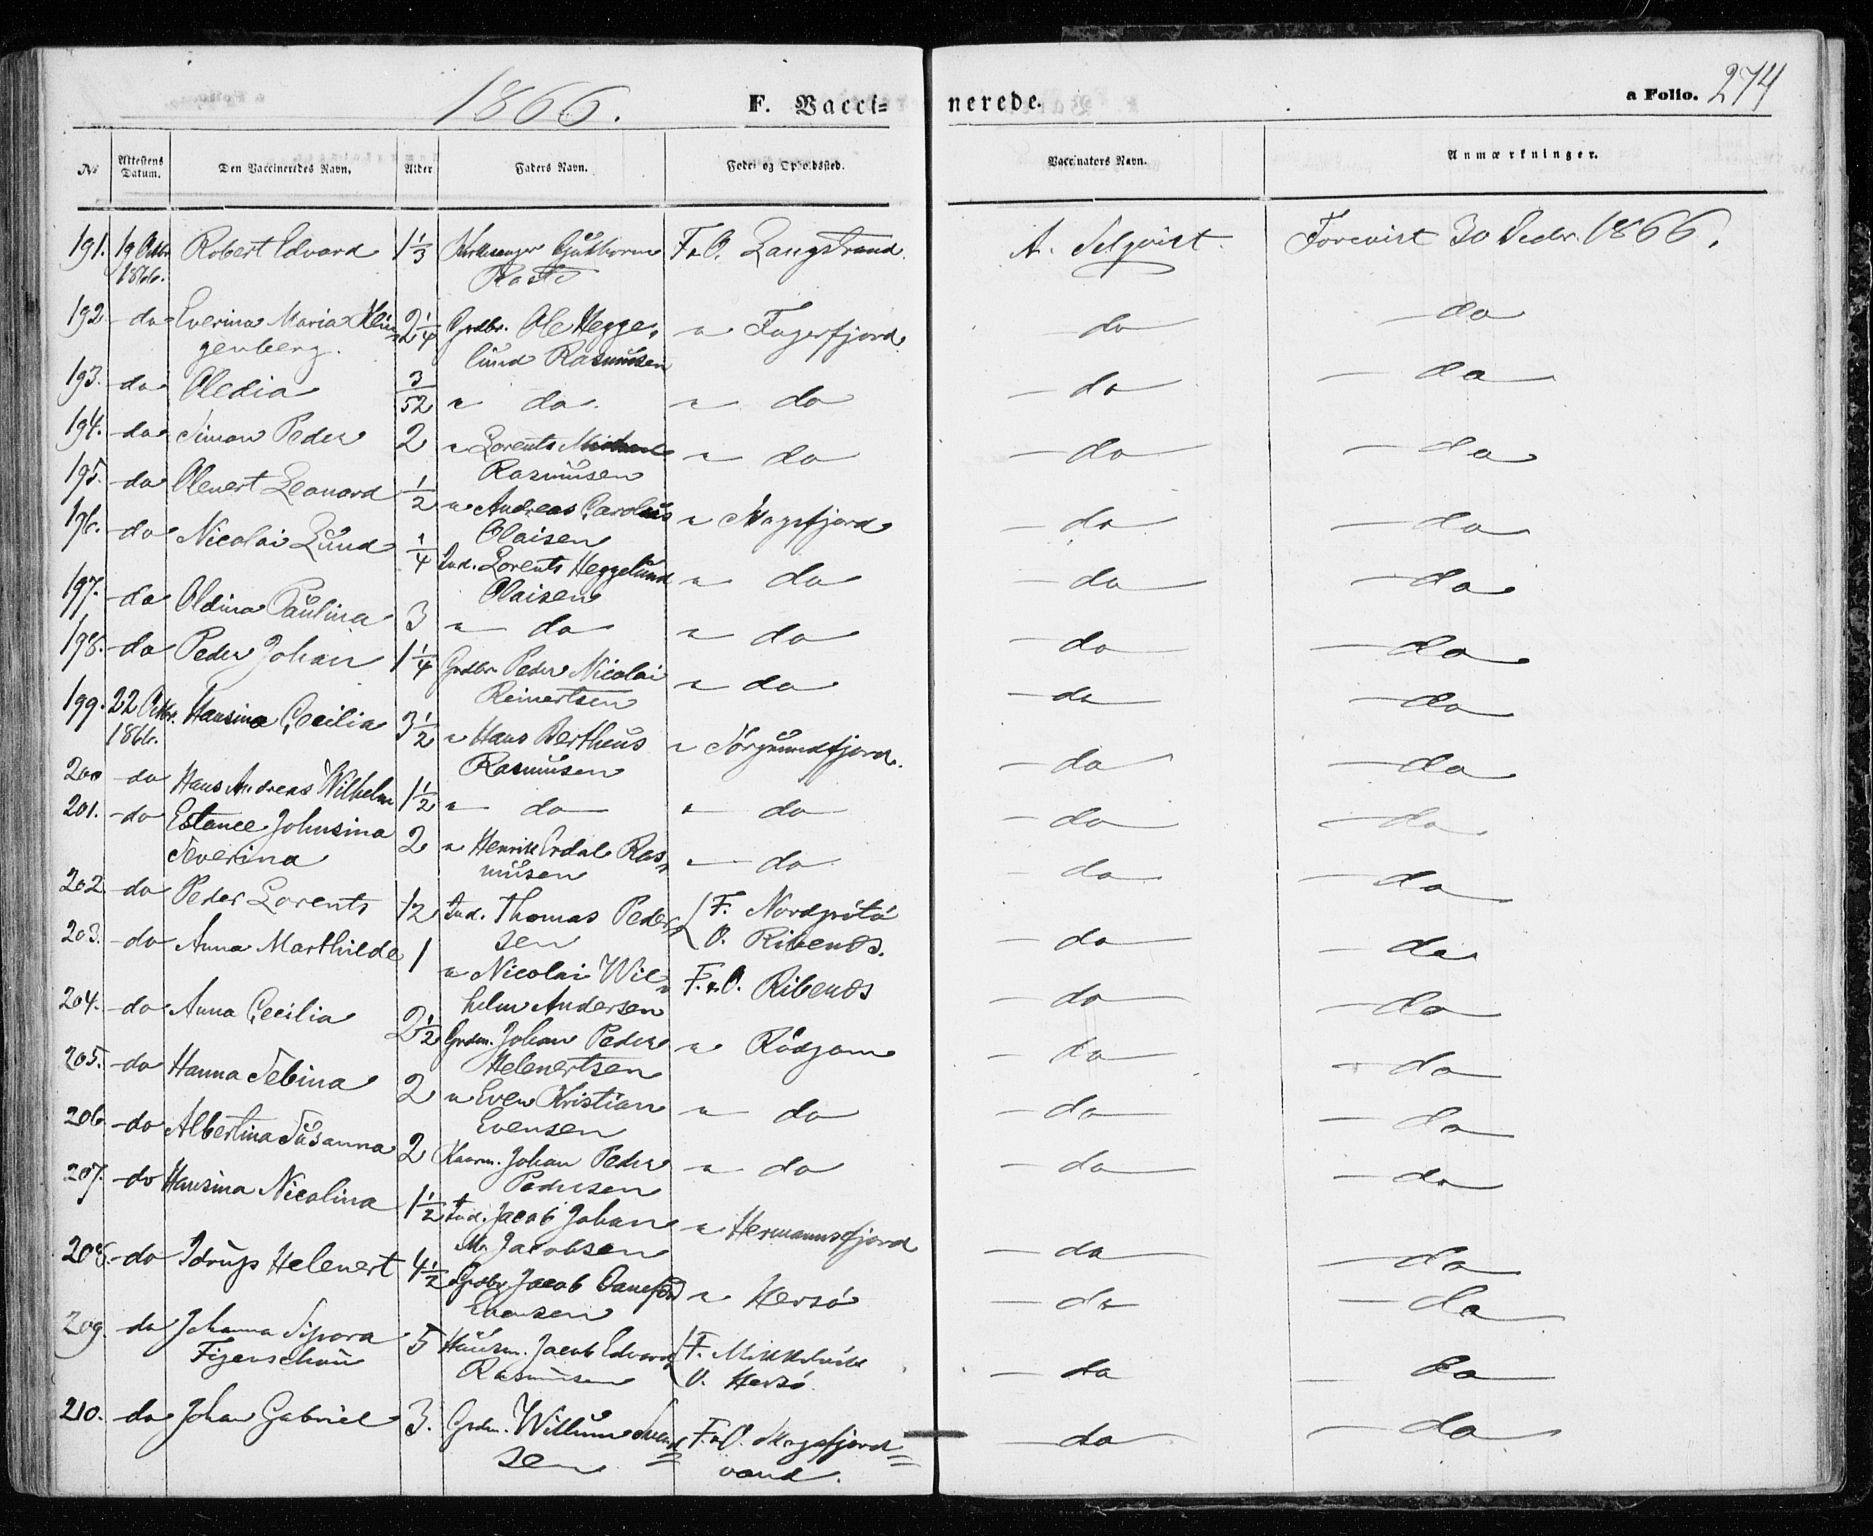 1866.
F. Vacci= nerede.
a Folio. 274
No Attestens Datum. Den Vaccineredes Navn. Alder Faders Navn. Føde- og Opholdssted. Vaccinators Navn. Anmærkninger.
191. 19 Octbr. Robert Edvard 1 1/3 Kirkesanger Guthorm F. & O. Langstrand. A. Selqvist. Forevist 30 Decbr. 1866.
1866. Rasto
192 - do Everina Maria Klin= 2 1/4 Grdbr. Ole Hegge= " Fagerfjord. - do - - do
genberg. lund Rasmusen
193. - do Oledia 3/52 " do. " do - do - - do -
194. - do Simon Peder 2 " Lorents " do - do - - do
Rasmusen
195. - do Olenert Leonard 1/2 " Andreas Carolus " Magsfjord - do - - do
Olaisen
196. - do Nicolai Lund 1/4 Ind. Lorents Heggelund " do - do - - do
Olaisen
197. - do Oldina Paulina 3 " do " do - do - - do
198. - do Peder Johan 1 1/4 Grdbr. Peder Nicolai " do - do - - do
Reinertsen
199. 22 Octbr. Hansine Cecilia 3 1/2 " Hans Bertheus " Sörgrundfjord. - do - - do
1866. Rasmusen
200 - do Hans Andreas Wilhelm 1 1/2 " do " do - do - - do
201. - do Estance Johnsina 2 " Henrik Erdal Ras= " do - do - - do
Severina musen
202. - do Peder Lorents 1/2 Ind. Thomas Peder= F. Nordgrötö - do - - do
sen O. Ribenæs.
203. - do Anna Marthilde 1 " Nicolai Wil= F. & O. Ribenæs - do - - do
helm Andersen
204. - do Anna Cecilia 2 1/2 Grdm. Johan Peder " Rödgam - do - - do
Helenertsen
205. - do Hanna Sebina 2 " Even Kristian " do - do - - do
Evensen
206. - do Albertina Susanna 2 Kaarm. Johan Peder " do - do - - do
Pedersen
207. - do Hansina Nicolina 1 1/2 Ind. Jacob Johan " Hermannsfjord - do - - do
M. Jacobsen
208. - do Idrup Helenert 4 1/2 Grdbr. Jacob " Hersö - do - - do
209. - do Johanna Sipora 5 Husm. Jacob Edvard F. Mikkelvik - do - - do
Figenschau Rasmusen O. Hersö.
210. - do Johan Gabriel 3. Grdm. Willum Svend= F. & O. Magsfjord= - do - - do
sen vand.